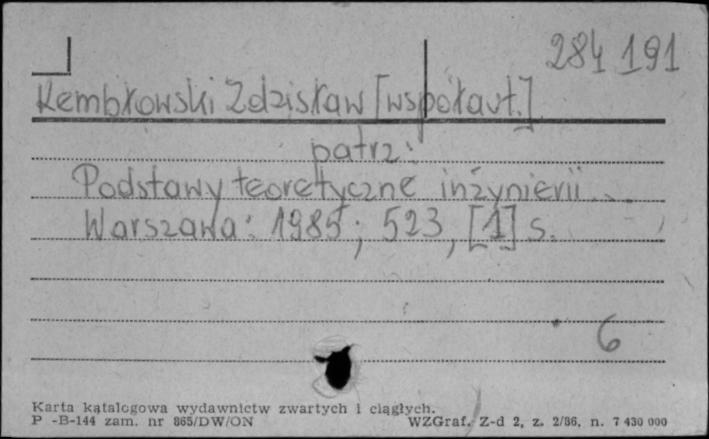 284 191
Kembłowski Zdzisław [współaut.]
patrz:
Podstawy teoretyczne inżynierii...
Warszawa: 1985; 523, [1] s.
6
Karta katalogowa wydawnictw zwartych i ciągłych.
P -B-144 zam. nr 865/DW/ON WZGraf. Z-d 2, z. 2/86, n. 7 430 000